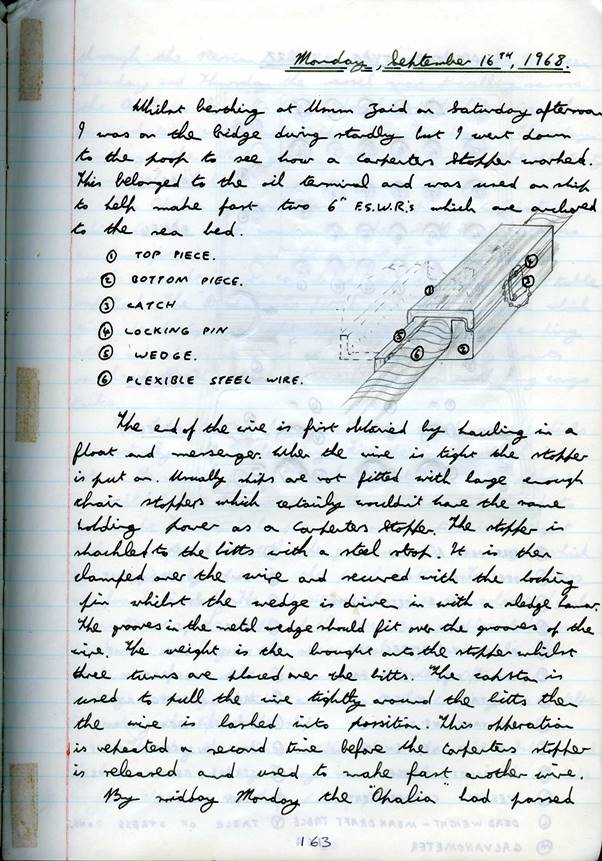 Monday, September 16TH, 1968.
Whilst berthing at Umm Zaid on Saturday afternoon
I was on the bridge during standby but I went down
to the poop to see how a Carpenters Stopper worked.
This belonged to the oil terminal and was used on ship
to help make fast two 6" F.S.W.R.'s which are anchored
to the sea bed.
① TOP PIECE.
② BOTTOM PIECE.
③ CATCH
④ LOCKING PIN
⑤ WEDGE.
⑥ FLEXIBLE STEEL WIRE.
The end of the wire is first obtained by hauling in a
float and messenger. When the wire is tight the stopper
is put on. Usually ships are not fitted with large enough
chain stoppers which certainly wouldn't have the same
holding power as a Carpenters Stopper. The stopper is
shackled to the bitts with a steel strop. It is then
clamped over the wire and secured with the locking
pin whilst the wedge is driven in with a sledge hammer.
The grooves in the metal wedge should fit over the grooves of the
wire. The weight is then brought onto the stopper whilst
three turns are placed over the bitts. The capstan is
used to pull the wire tightly around the bitts then
the wire is lashed into possition. This opperation
is repeated a second time before the carpenters stopper
is released and used to make fast another wire.
By midday Monday the "Ohalia" had passed
163